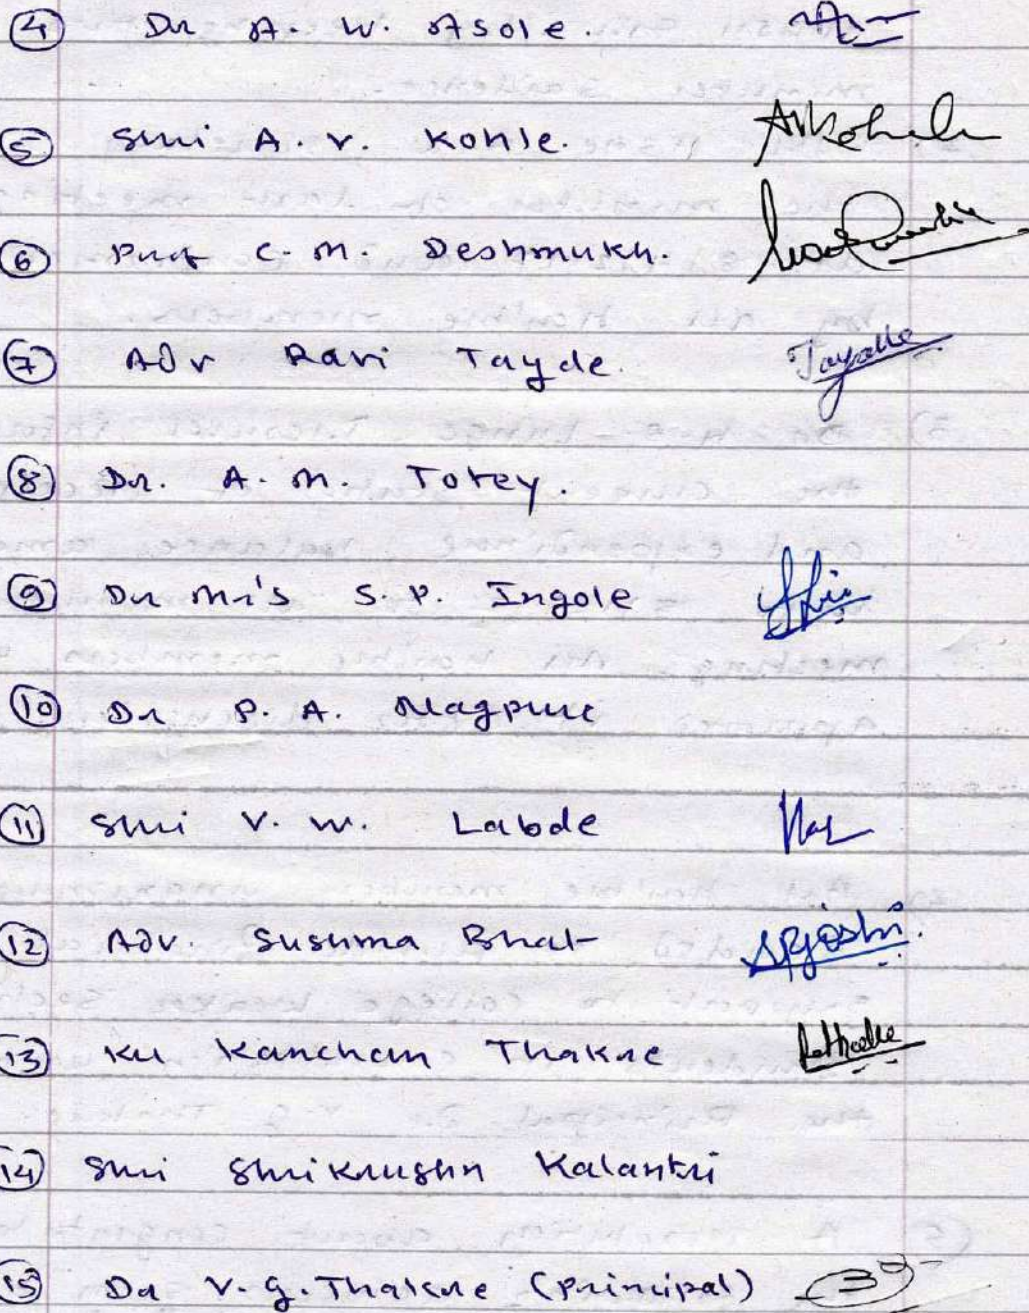 ④ Dr A. W. Asole.
⑤ Shri A. V. Kohle. AVKohale
⑥ Prof C. M. Deshmukh.
⑦ Adv Ravi Tayde. Tayade
⑧ Dr. A. M. Totey.
⑨ Dr Mr's S. P. Ingole
⑩ Dr P. A. Nagpure
⑪ Shri V. W. Labde
⑫ Adv. Sushma Bhat SRJoshi.
⑬ Ku Kancham Thakre
⑭ Shri Shrikrushn Kalantri
⑮ Dr V. G. Thakre (Principal)